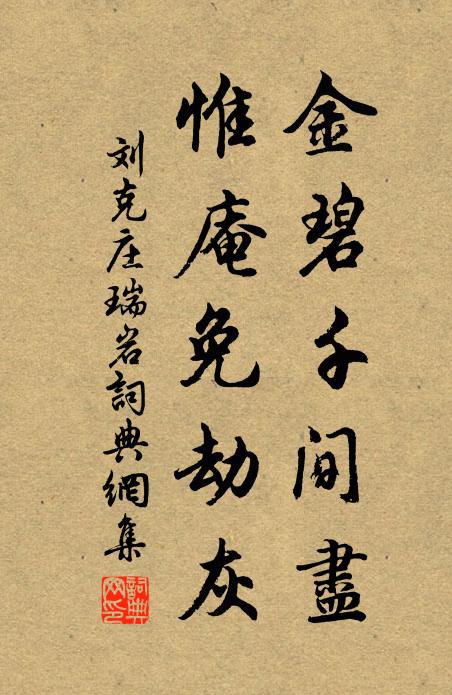 金碧千间盡
惟庵免劫灰
刘克庄瑞岩詞典網集
詞典網印